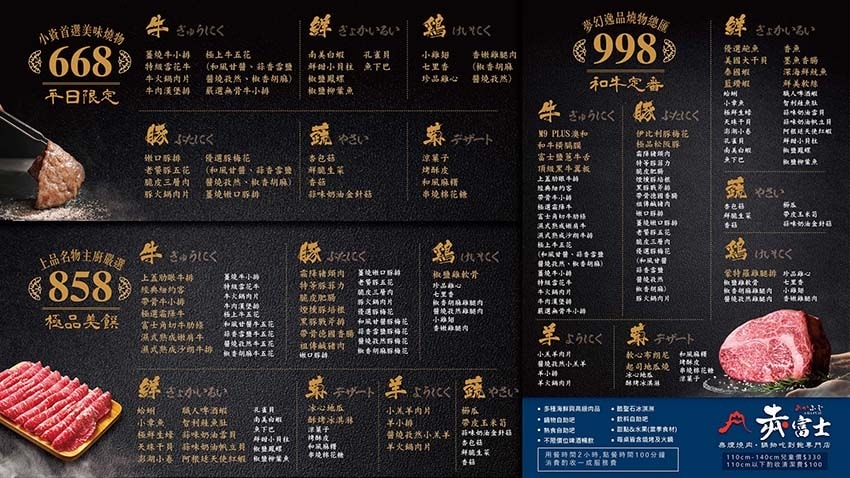 小資首選美味燒物
668
平日限定
牛 ぎゅうにく
薑燒牛小排
特級雪花牛
牛火鍋肉片
牛肉漢堡排
極上牛五花
(和風甘醬、蒜香雲鹽
醬燒孜然、椒香胡麻)
嚴選無骨牛小排
鮮 ぎょかいるい
南美白蝦
鮮甜小貝柱
椒鹽鳳螺
椒鹽柳葉魚
孔雀貝
魚下巴
鶏 けいにく
小雞翅
七里香
珍品雞心
香嫩雞腿肉
(椒香胡麻
醬燒孜然)
豚 ぶたにく
嫩口豚排
老饕豚五花
脆皮三層肉
豚火鍋肉片
優選豚梅花
(和風甘醬、蒜香雲鹽
醬燒孜然、椒香胡麻)
薑燒嫩口豚排
蔬 やさい
杏包菇
鮮脆生菜
香菇
蒜味奶油金針菇
菓 デザート
涼菓子
烤酥皮
和風麻糬
串燒棉花糖
上品名物主廚嚴選
858
極品美饌
牛 ぎゅうにく
上蓋肋眼牛排
經典紐約客
帶骨牛小排
極選霜降牛
富士角切牛肋條
濕式熟成嫩肩牛
濕式熟成沙朗牛排
薑燒牛小排
特級雪花牛
牛火鍋肉片
牛肉漢堡排
極上牛五花
和風甘醬牛五花
蒜香雲鹽牛五花
醬燒孜然牛五花
椒香胡麻牛五花
豚 ぶたにく
霜降豬頰肉
特等豚菲力
脆皮肥腸
煙燻豚培根
黑豚戰斧排
帶骨德國香腸
祖傳鹹豬肉
嫩口豚排
薑燒嫩口豚排
老饕豚五花
脆皮三層肉
豚火鍋肉片
優選豚梅花
和風甘醬豚梅花
蒜香雲鹽豚梅花
醬燒孜然豚梅花
椒香胡麻豚梅花
鶏 けいにく
椒鹽雞軟骨
珍品雞心
七里香
椒香胡麻雞腿肉
醬燒孜然雞腿肉
小雞翅
香嫩雞腿肉
鮮 ぎょかいるい
蛤蜊
小章魚
極鮮生蠔
天珠干貝
澎湖小卷
職人啤酒蝦
智利辣魚肚
蒜味奶油雪貝
蒜味奶油帆立貝
阿根廷天使紅蝦
孔雀貝
南美白蝦
魚下巴
鮮甜小貝柱
椒鹽鳳螺
椒鹽柳葉魚
菓 デザート
冰心地瓜
酥烤冰淇淋
涼菓子
烤酥皮
和風麻糬
串燒棉花糖
羊 ようにく
小羔羊肉片
羊小排
醬燒孜然小羔羊
羊火鍋肉片
蔬 やさい
櫛瓜
帶皮玉米筍
杏包菇
鮮脆生菜
香菇
蒜味奶油金針菇
夢幻逸品燒物總匯
998
和牛定番
牛 ぎゅうにく
M9 PLUS澳和
和牛橫膈膜
富士鹽蔥牛舌
頂級黑牛翼板
上蓋肋眼牛排
經典紐約客
帶骨牛小排
極選霜降牛
富士角切牛肋條
濕式熟成嫩肩牛
濕式熟成沙朗牛排
極上牛五花
(和風甘醬、蒜香雲鹽
醬燒孜然、椒香胡麻)
薑燒牛小排
特級雪花牛
牛火鍋肉片
牛肉漢堡排
嚴選無骨牛小排
豚 ぶたにく
伊比利豚梅花
極品松阪豚
霜降豬頰肉
特等豚菲力
脆皮肥腸
煙燻豚培根
黑豚戰斧排
帶骨德國香腸
祖傳鹹豬肉
嫩口豚排
薑燒嫩口豚排
老饕豚五花
脆皮三層肉
優選豚梅花
(和風甘醬
蒜香雲鹽
醬燒孜然
椒香胡麻)
豚火鍋肉片
鮮 ぎょかいるい
優選鮑魚
美國大干貝
泰國蝦
藍鑽蝦
蛤蜊
小章魚
極鮮生蠔
天珠干貝
澎湖小卷
孔雀貝
南美白蝦
魚下巴
香魚
墨魚香腸
深海鮮魷魚
鮮美軟絲
職人啤酒蝦
智利辣魚肚
蒜味奶油雪貝
蒜味奶油帆立貝
阿根廷天使紅蝦
鮮甜小貝柱
椒鹽鳳螺
椒鹽柳葉魚
蔬 やさい
杏包菇
鮮脆生菜
香菇
櫛瓜
帶皮玉米筍
蒜味奶油金針菇
鶏 けいにく
蒙特羅雞腿排
椒鹽雞軟骨
和風麻香雞腿肉
醬燒孜然雞腿肉
珍品雞心
七里香
小雞翅
香嫩雞腿肉
羊 ようにく
小羔羊肉片
醬燒孜然小羔羊
羊小排
羊火鍋肉片
菓 デザート
軟心布朗尼
起司地瓜燒
冰心地瓜
酥烤冰淇淋
和風麻糬
烤酥皮
串燒棉花糖
涼菓子
• 多種海鮮與高級肉品
• 鍋物自助吧
• 熟食自助吧
• 不限價位啤酒暢飲
• 酷聖石冰淇淋
• 飲料自助吧
• 甜點&水果(當季食材)
• 每桌皆含燒烤及火鍋
用餐時間2小時,點餐時間100分鐘
消費酌收一成服務費
あかふじ
赤富士
無煙燒肉・鍋物吃到飽專門店
110cm-140cm兒童價$330
110cm以下酌收清潔費$100